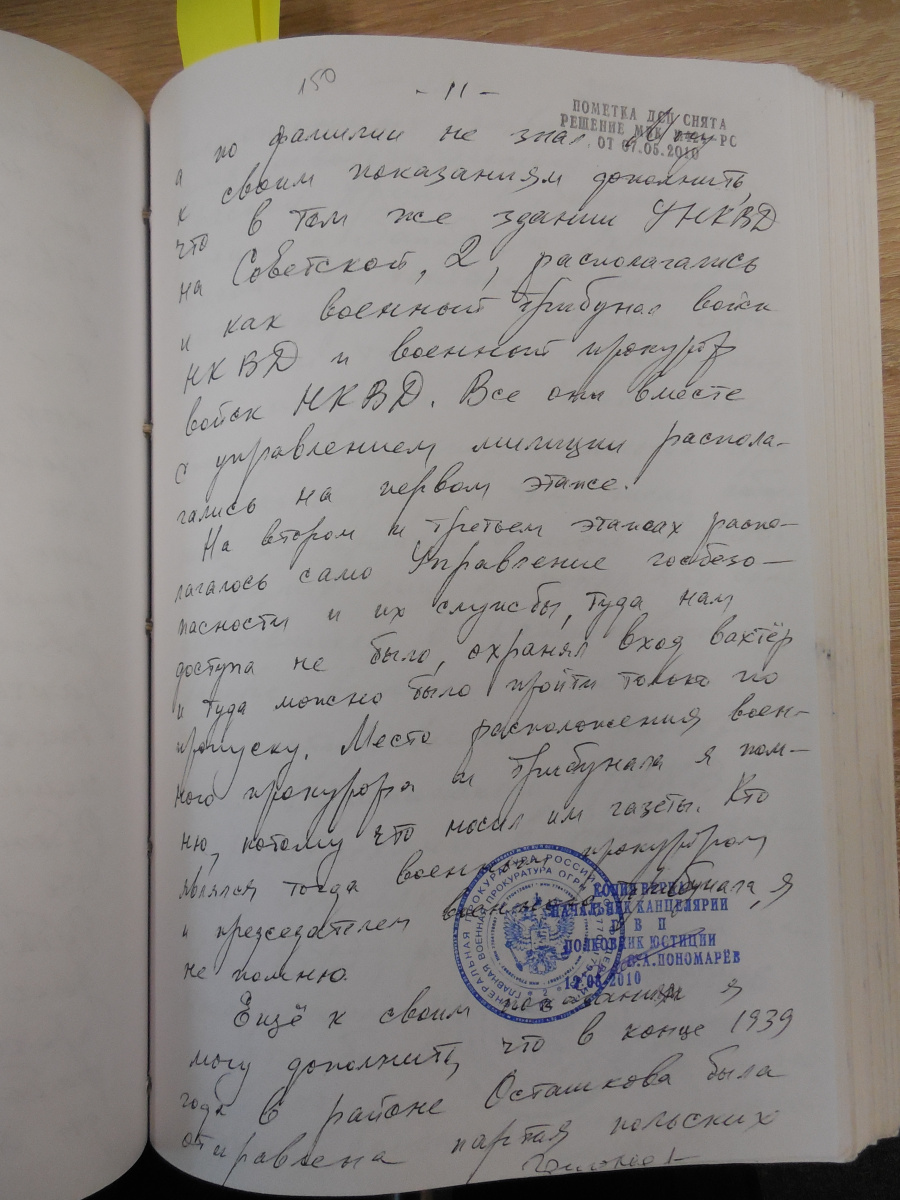 150
- 11 -
ПОМЕТКА ДСП СНЯТА
РЕШЕНИЕ МВК РС
ОТ 07.05.2010
а по фамилии не знал. Могу
к своим показаниям дополнить,
что в том же здании УНКВД
на Советской, 2, располагались
и как военный трибунал войск
НКВД и военный прокурор
войск НКВД. Все они вместе
с управлением милиции распола-
гались на первом этаже.
На втором и третьем этажах распо-
лагалось само Управление госбезо-
пасности и их службы, туда нам
доступа не было, охранял вход вахтёр
и туда можно было пройти только по
пропуску. Место расположения воен-
ного прокурора и трибунала я пом-
ню, потому что носил им газеты. Кто
являлся тогда военным прокурором
и председателем военного трибунала, я
не помню.
КОПИЯ ВЕРНА
НАЧАЛЬНИК КАНЦЕЛЯРИИ
Г В П
ПОЛКОВНИК ЮСТИЦИИ
С.А.ПОНОМАРЁВ
12.08.2010
ГЛАВНАЯ ВОЕННАЯ ПРОКУРАТУРА
Ещё к своим показаниям я
могу дополнить, что в конце 1939
года в районе Осташкова была
отправлена партия польских